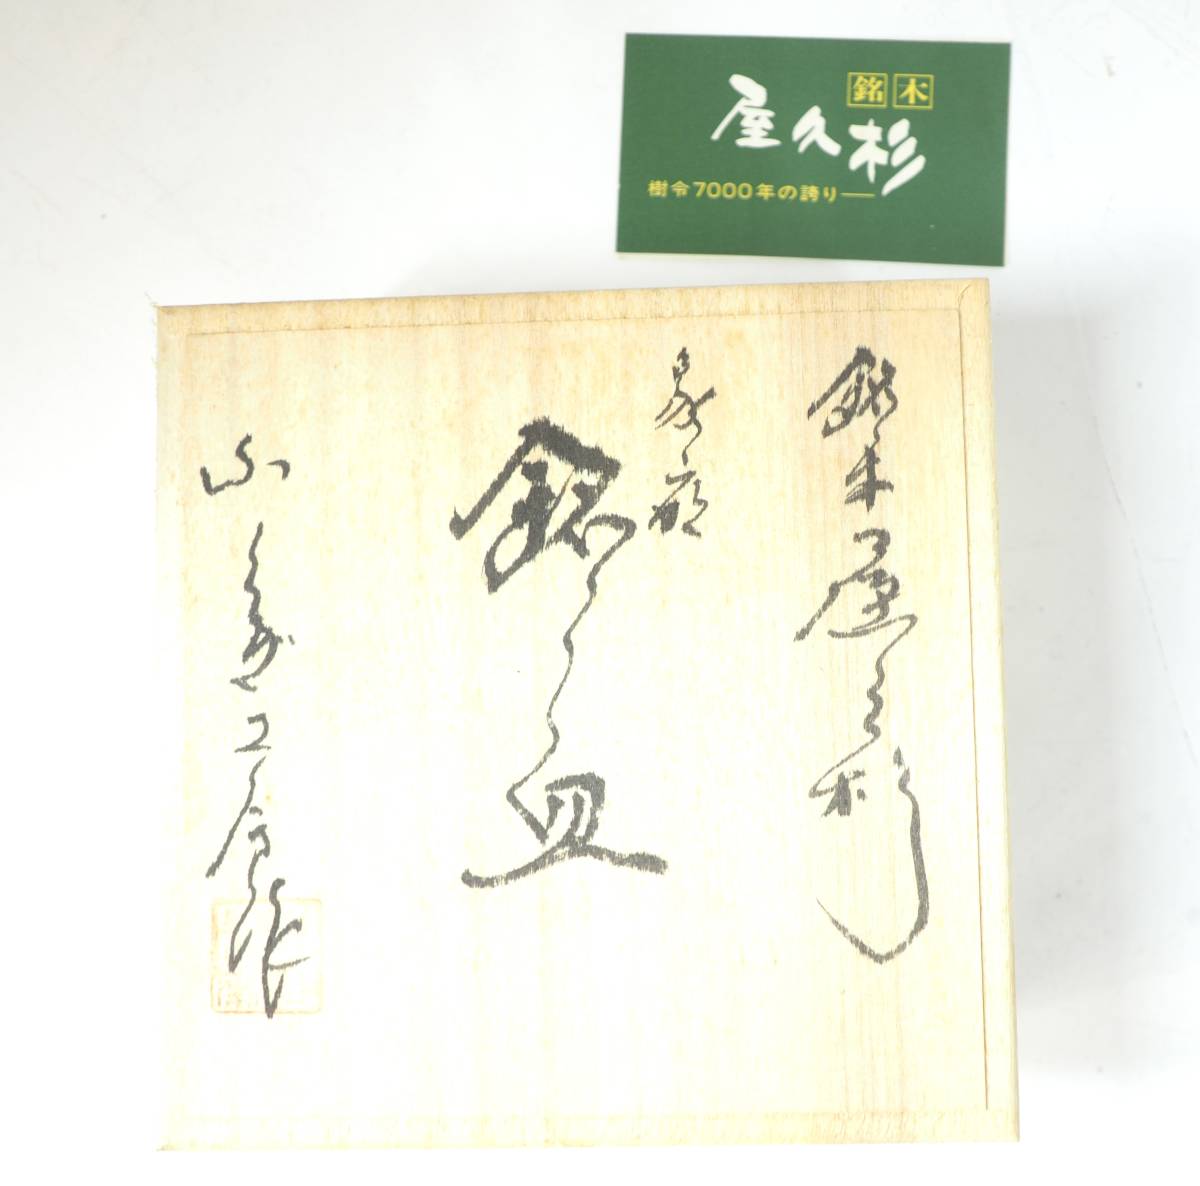 銘木
屋久杉
樹令7000年の誇り
銘木屋久杉
銘々皿
工房作